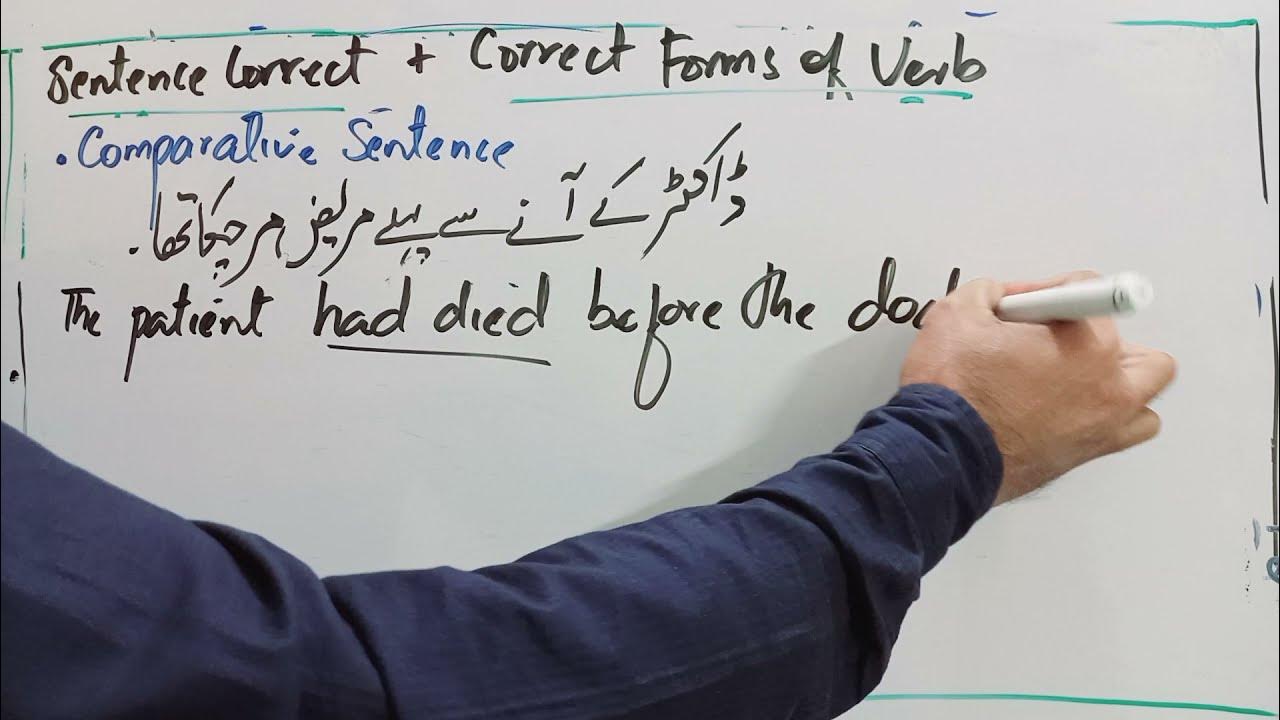 Sentence Correct + Correct Forms of Verb
. Comparative Sentence
ڈاکٹر کے آنے سے پہلے مریض مر چکا تھا۔
The patient had died before the doc